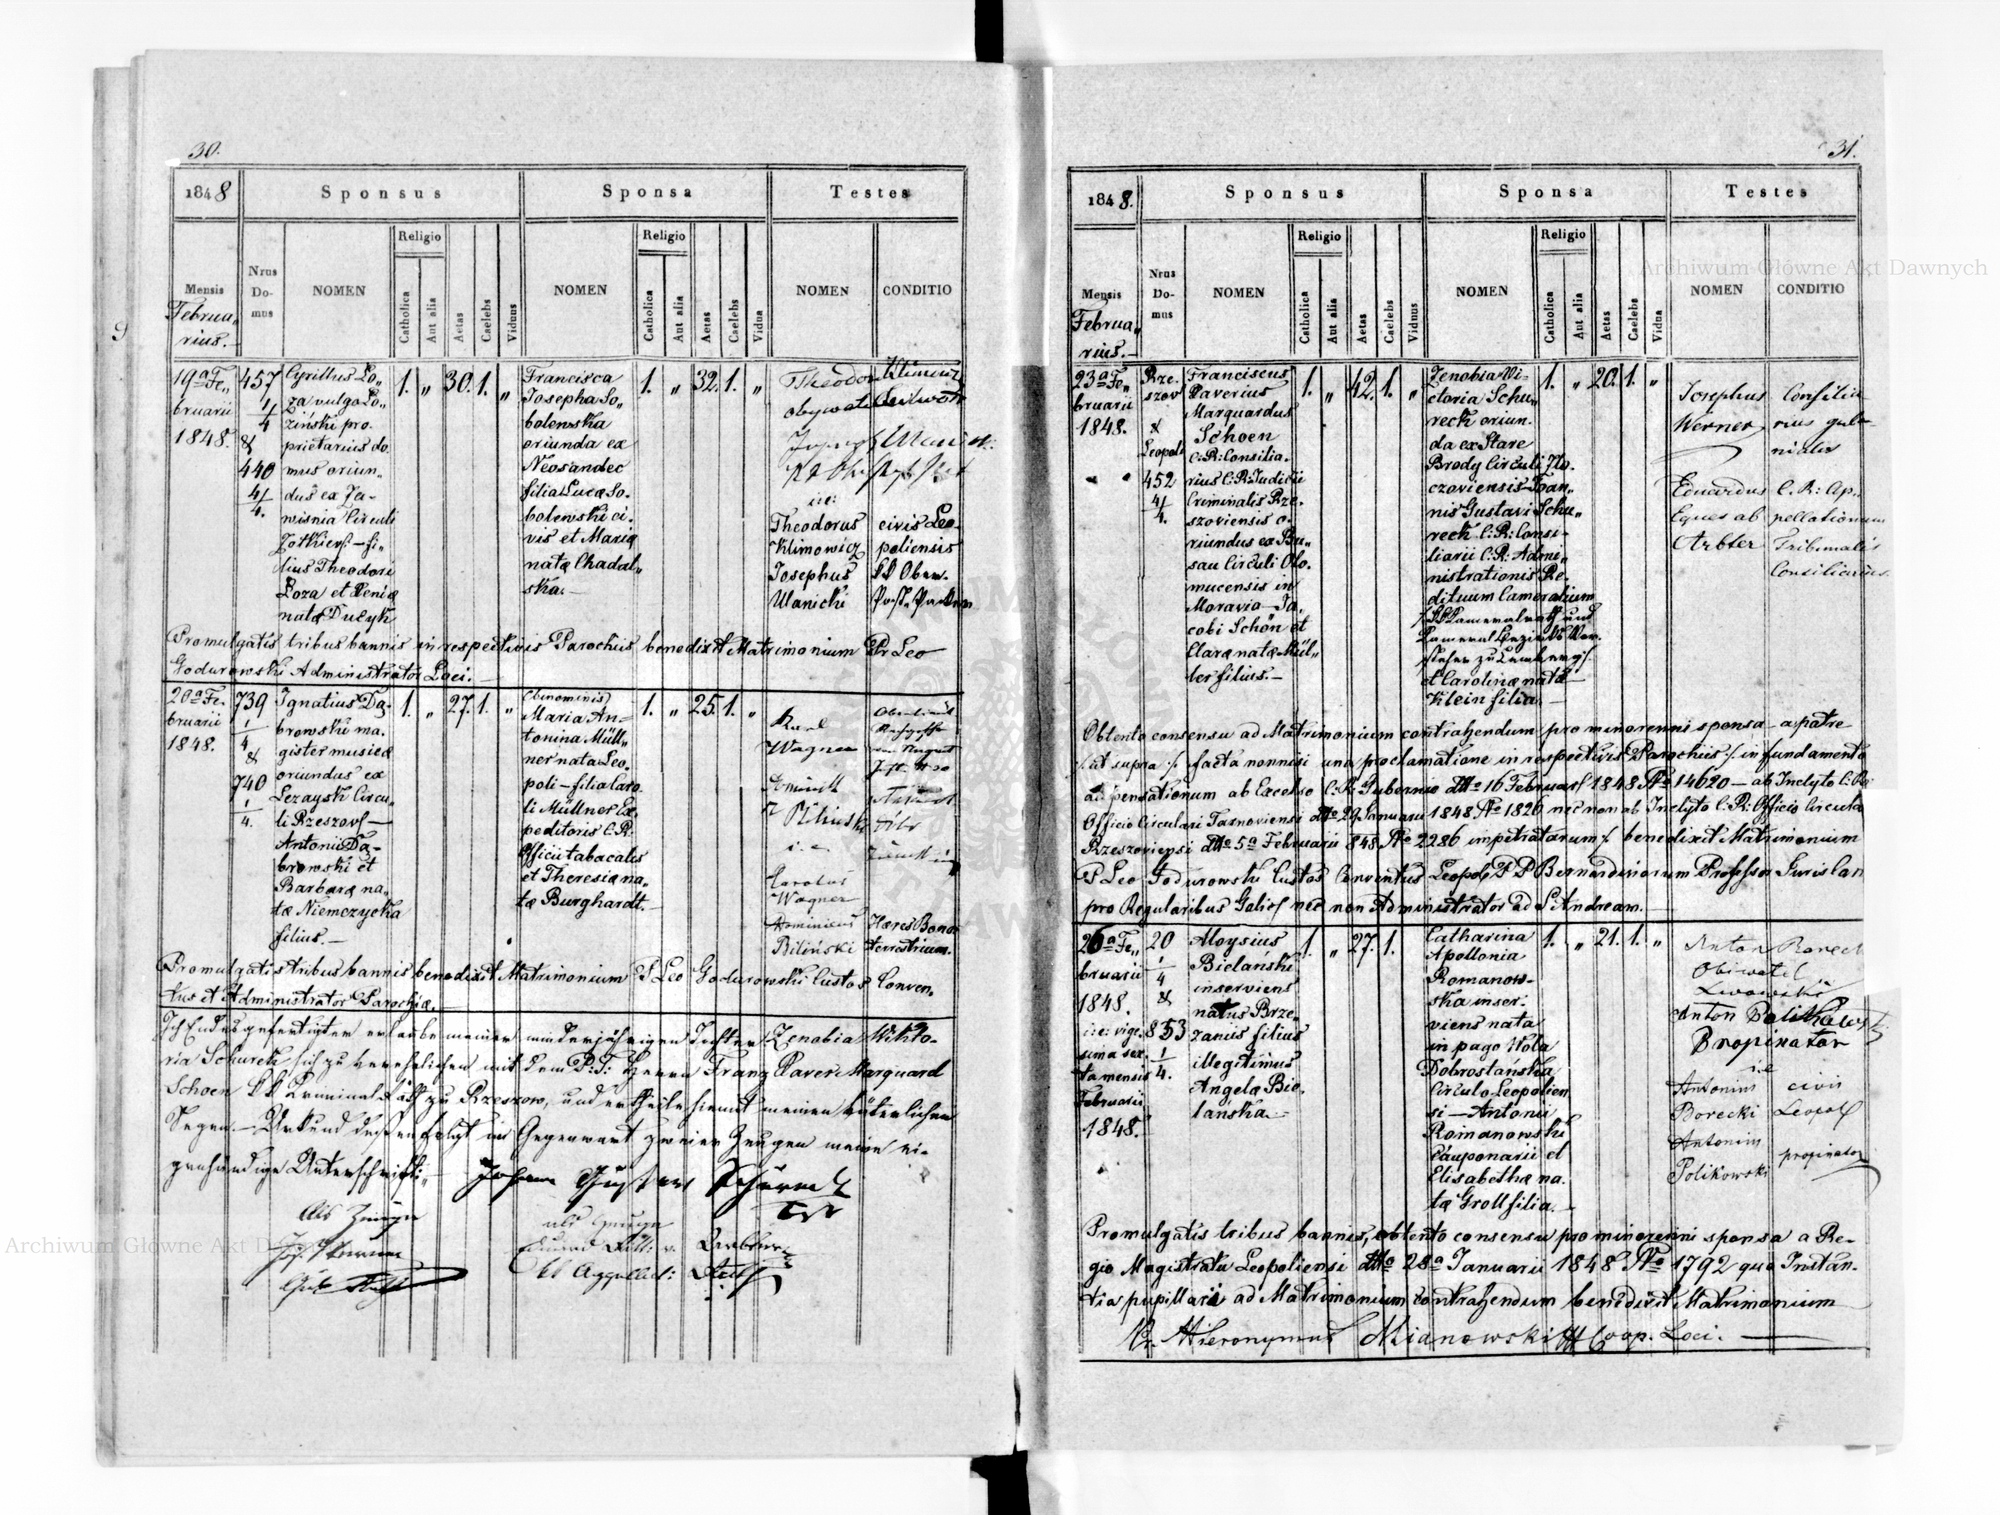 30.
1848
Sponsus
Sponsa
Testes
Mensis
Februa„
rius.
Nrus
Do-
mus
NOMEN
Religio
Catholica
Aut alia
Aetas
Caelebs
Viduus
NOMEN
Religio
Catholica
Aut alia
Aetas
Caelebs
Vidua
NOMEN
CONDITIO
19a Fe„
bruarii
1848.
457
1/4
&
440
4/4.
Cyrillus Lo„
za vulgo Lo„
ziński pro„
prietarius do
mus oriun„
dus ex Ja-
wisnia Circuli
Zotkiew: — fi„
lius Theodori
Loza et Xeniæ
natæ Duczyk
1. „ 30. 1. „
Francisca
Josepha So„
bolewska
oriunda ex
Neosandec
filia Lucæ So„
bolewski ci„
vis et Mariæ
natæ Chadal„
ska.—
1. „ 32. 1. „
Theodor Klimowicz
obywatel
i:e:
Theodorus
Klimowicz
Josephus
Ulanicki
civis Leo-
poliensis
KK Ober-
Promulgatis tribus bannis in respectivis Parochiis benedixit Matrimonium Pr Leo
Godurowski Administrator Loci.—
20a Fe„
bruarii
1848.
739
1/4
&
740
1/4.
Ignatius Dą„
browski ma„
gister musicæ
oriundus ex
Lezaysk Circu„
li Rzeszov —
Antonii Dą-
browski et
Barbaræ na„
tæ Niemczycka
filius.—
1. „ 27. 1. „
Maria An-
tonina Müll„
ner nata Leo„
poli — filia Caro
li Müllner Ex„
peditoris C.R.
Officii tabacalis
et Theresiæ na„
tæ Burghardt.—
1. „ 25. 1. „
Karl
Wagner
Dominik
Biliński
i.e
Carolus
Wagner
Dominicus
Biliński
Hæres Bonor
terrestrium.
Promulgatis tribus bannis benedixit Matrimonium P Leo Godurowski Custos Conven„
tus et Administrator Parochiæ.
Ich Endesgefertigter erlaube meiner minderjährigen Tochter Zenobia Wikto-
ria Schurek sich zu verehelichen mit dem P:T: Herrn Franz Xaver Marquard
Schoen KK Kriminal Rath zu Rzeszow, und ertheile hiemit meinen väterlichen
Segen.— Urkund dessen folgt in Gegenwart zweier Zeugen meine ei-
genhändige Unterschrift:
Johann Gustav Schureck
Als Zeuge
Jos. Werner
Gub Rath
als Zeuge
Eduard Ritt: v. Arbter
KK Appellat: Rath
31.
1848.
Sponsus
Sponsa
Testes
Mensis
Februa„
rius.—
Nrus
Do-
mus
NOMEN
Religio
Catholica
Aut alia
Aetas
Caelebs
Viduus
NOMEN
Religio
Catholica
Aut alia
Aetas
Caelebs
Vidua
NOMEN
CONDITIO
23a Fe„
bruarii
1848.
Rze-
szov
&
Leopoli
452
4/4.
Franciscus
Xaverius
Marquardus
Schoen
C:R: Consilia„
rius C:R: Judicii
Criminalis Rze„
szoviensis o„
riundus ex Bu„
sau Circuli Olo„
mucensis in
Moravia — Ja„
cobi Schön et
Claræ natæ Mül„
ler filius.—
1. „ 42. 1. „
Zenobia Vi„
ctoria Schu„
reck oriun„
da ex Stare
Brody Circuli Zlo„
czoviensis — Joan„
nis Gustavi Schu„
reck C:R: Consi-
liarii C:R: Admi„
nistrationis Re„
dituum Cameralium
/: KK Kameralrath und
Kameral Bezirks Vor„
steher zu Lemberg :/
et Carolinæ natæ
Klein filia.—
1. „ 20. 1. „
Josephus
Werner
Eduardus
Eques ab
Arbter
Consilia
rius gube-
nialis
C: R: Ap„
pellationum
Tribunalis
Consiliarius.
Obtento consensu ad Matrimonium contrahendum pro minorenni sponsa a patre
/: ut supra :/ facta nonnisi una proclamatione in respectivis Parochiis /: in fundamento
dispensationum ab Excelso C:R: Gubernio ddto 16 Februar 1848 No 14020 — ab Inclyto C:R:
Officio Circulari Tarnoviensi ddto 29 Januarii 1848 No 1826 nec non ab Inclyto C:R: Officio Circula
Rzeszoviensi ddto 5a Februarii 848 No 2286 impetratarum :/ benedixit Matrimonium
P Leo Godurowski Custos Conventus Leopol PP Bernardinorum Professor Juris Can
pro Regularibus Galic nec non Administrator ad S Andream.—
26a Fe„
bruarii
1848.
i:e: vige„
sima sex
ta mensis
Februarii
1848.
20
1/4
&
853
1/4.
Aloysius
Bielański
inserviens
natus Brze„
zaniis filius
illegitimus
Angelæ Bie„
lańska.—
1. „ 27. 1. „
Catharina
Apollonia
Romanow-
ska inser„
viens nata
in pago Wola
Dobrostańska
Circulo Leopolien
si — Antonii
Romanowski
Cauponarii et
Elisabethæ na„
tæ Groll filia.—
1. „ 21. 1. „
Anton Borecki
Obiwatel
Lwowski
Anton Polikowski
Propinator
i.e
Antonius
Borecki
Antonius
Polikowski
civis
Leopol
propinator
Promulgatis tribus bannis, obtento consensu pro minorenni sponsa a Re-
gio Magistratu Leopoliensi ddto 28a Januarii 1848 No 1792 qua Instan-
tia pupillari ad Matrimonium contrahendum benedixit Matrimonium
Fr. Hieronymus Mianowski Coop. Loci.—
Archiwum Główne Akt Dawnych
Archiwum Główne Akt Dawnych